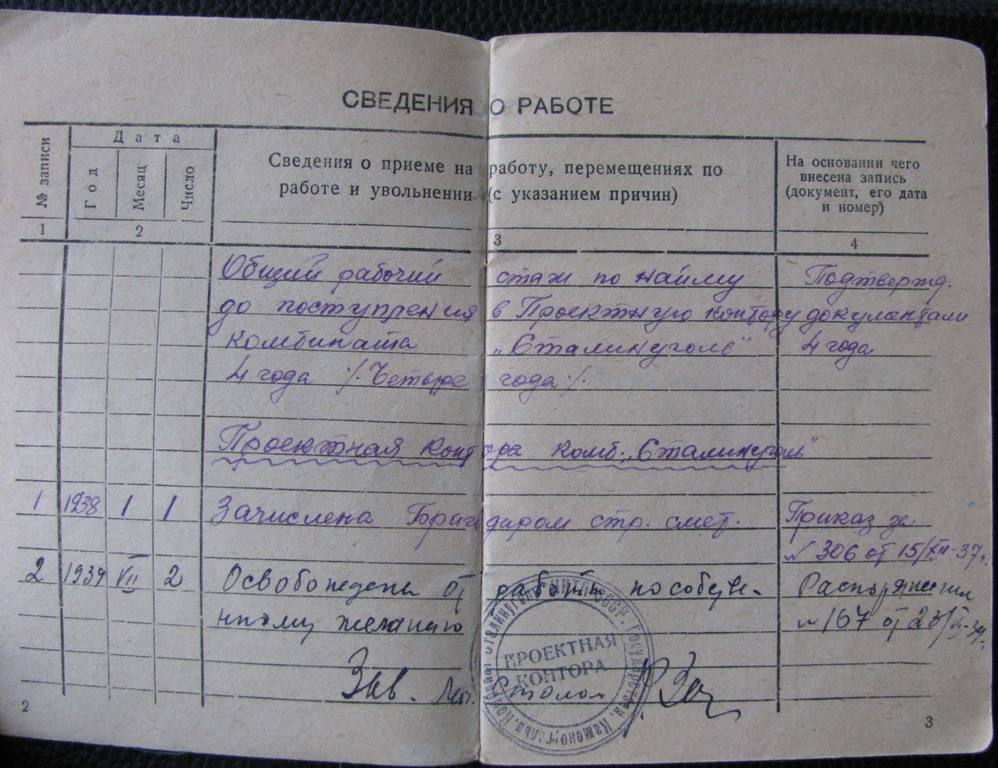 СВЕДЕНИЯ О РАБОТЕ
№ записи
Дата
Год
Месяц
Число
Сведения о приеме на работу, перемещениях по
работе и увольнении (с указанием причин)
На основании чего
внесена запись
(документ, его дата
и номер)
1 2 3 4
Общий рабочий стаж по найму Подтвержд.
до поступления в Проектную контору документами
комбината „Сталинуголь" 4 года
4 года /. Четыре года /.
Проектная контора комб. „Сталинуголь"
1 1938 1 1 Зачислена Бригадиром стр. смет. Приказ за
№ 306 от 15/XII-37г.
2 1939 VII 2 Освобождена от работы по собстве- Распоряжения
нному желанию № 167 от 23/VI-39г.
Зав. столом
ПРОЕКТНАЯ
КОНТОРА
2
3